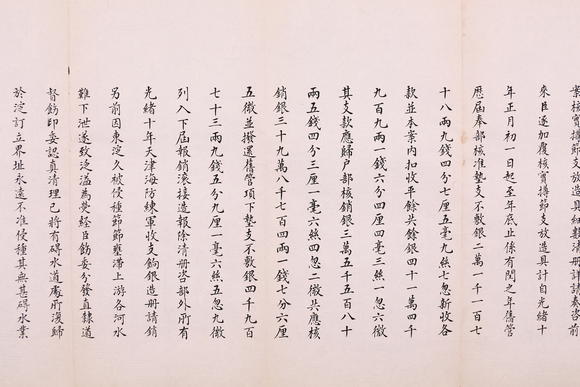 案核實撙節支放造具細數清册詳請奏咨前
來臣逐加覆核實撙節支放造具計自光緒十
年正月初一日起至年底止係有閏之年舊管
歷屆奉部核准墊支不敷銀二萬一千一百七
十八兩九錢四分七厘五毫九絲七忽新收各
款並本案內扣收平餘共銀四十一萬四千
九百九兩一錢六分四厘四毫三絲一忽六微
其支款應歸户部核銷銀三萬五千五百八十
兩五錢四分三厘一毫六絲四忽二微共應核
銷銀三十九萬八千七百四兩一錢七分六厘
五微並撥還舊管項下墊支不敷銀四千九百
七十三兩九錢五分九厘一毫六絲五忽九微
列入下屆報銷滾接造報除清册咨部外所有
光緒十年天津海防練軍收支餉銀造册請銷
另前因東淀久被侵種節節壅滯上游各河水
難下泄遂致泛溢為災経臣飭委分發直隸道
督飭印委認真清理已將有碍水道處所復歸
於淀訂立界址永遠不准侵種其無甚碍水業